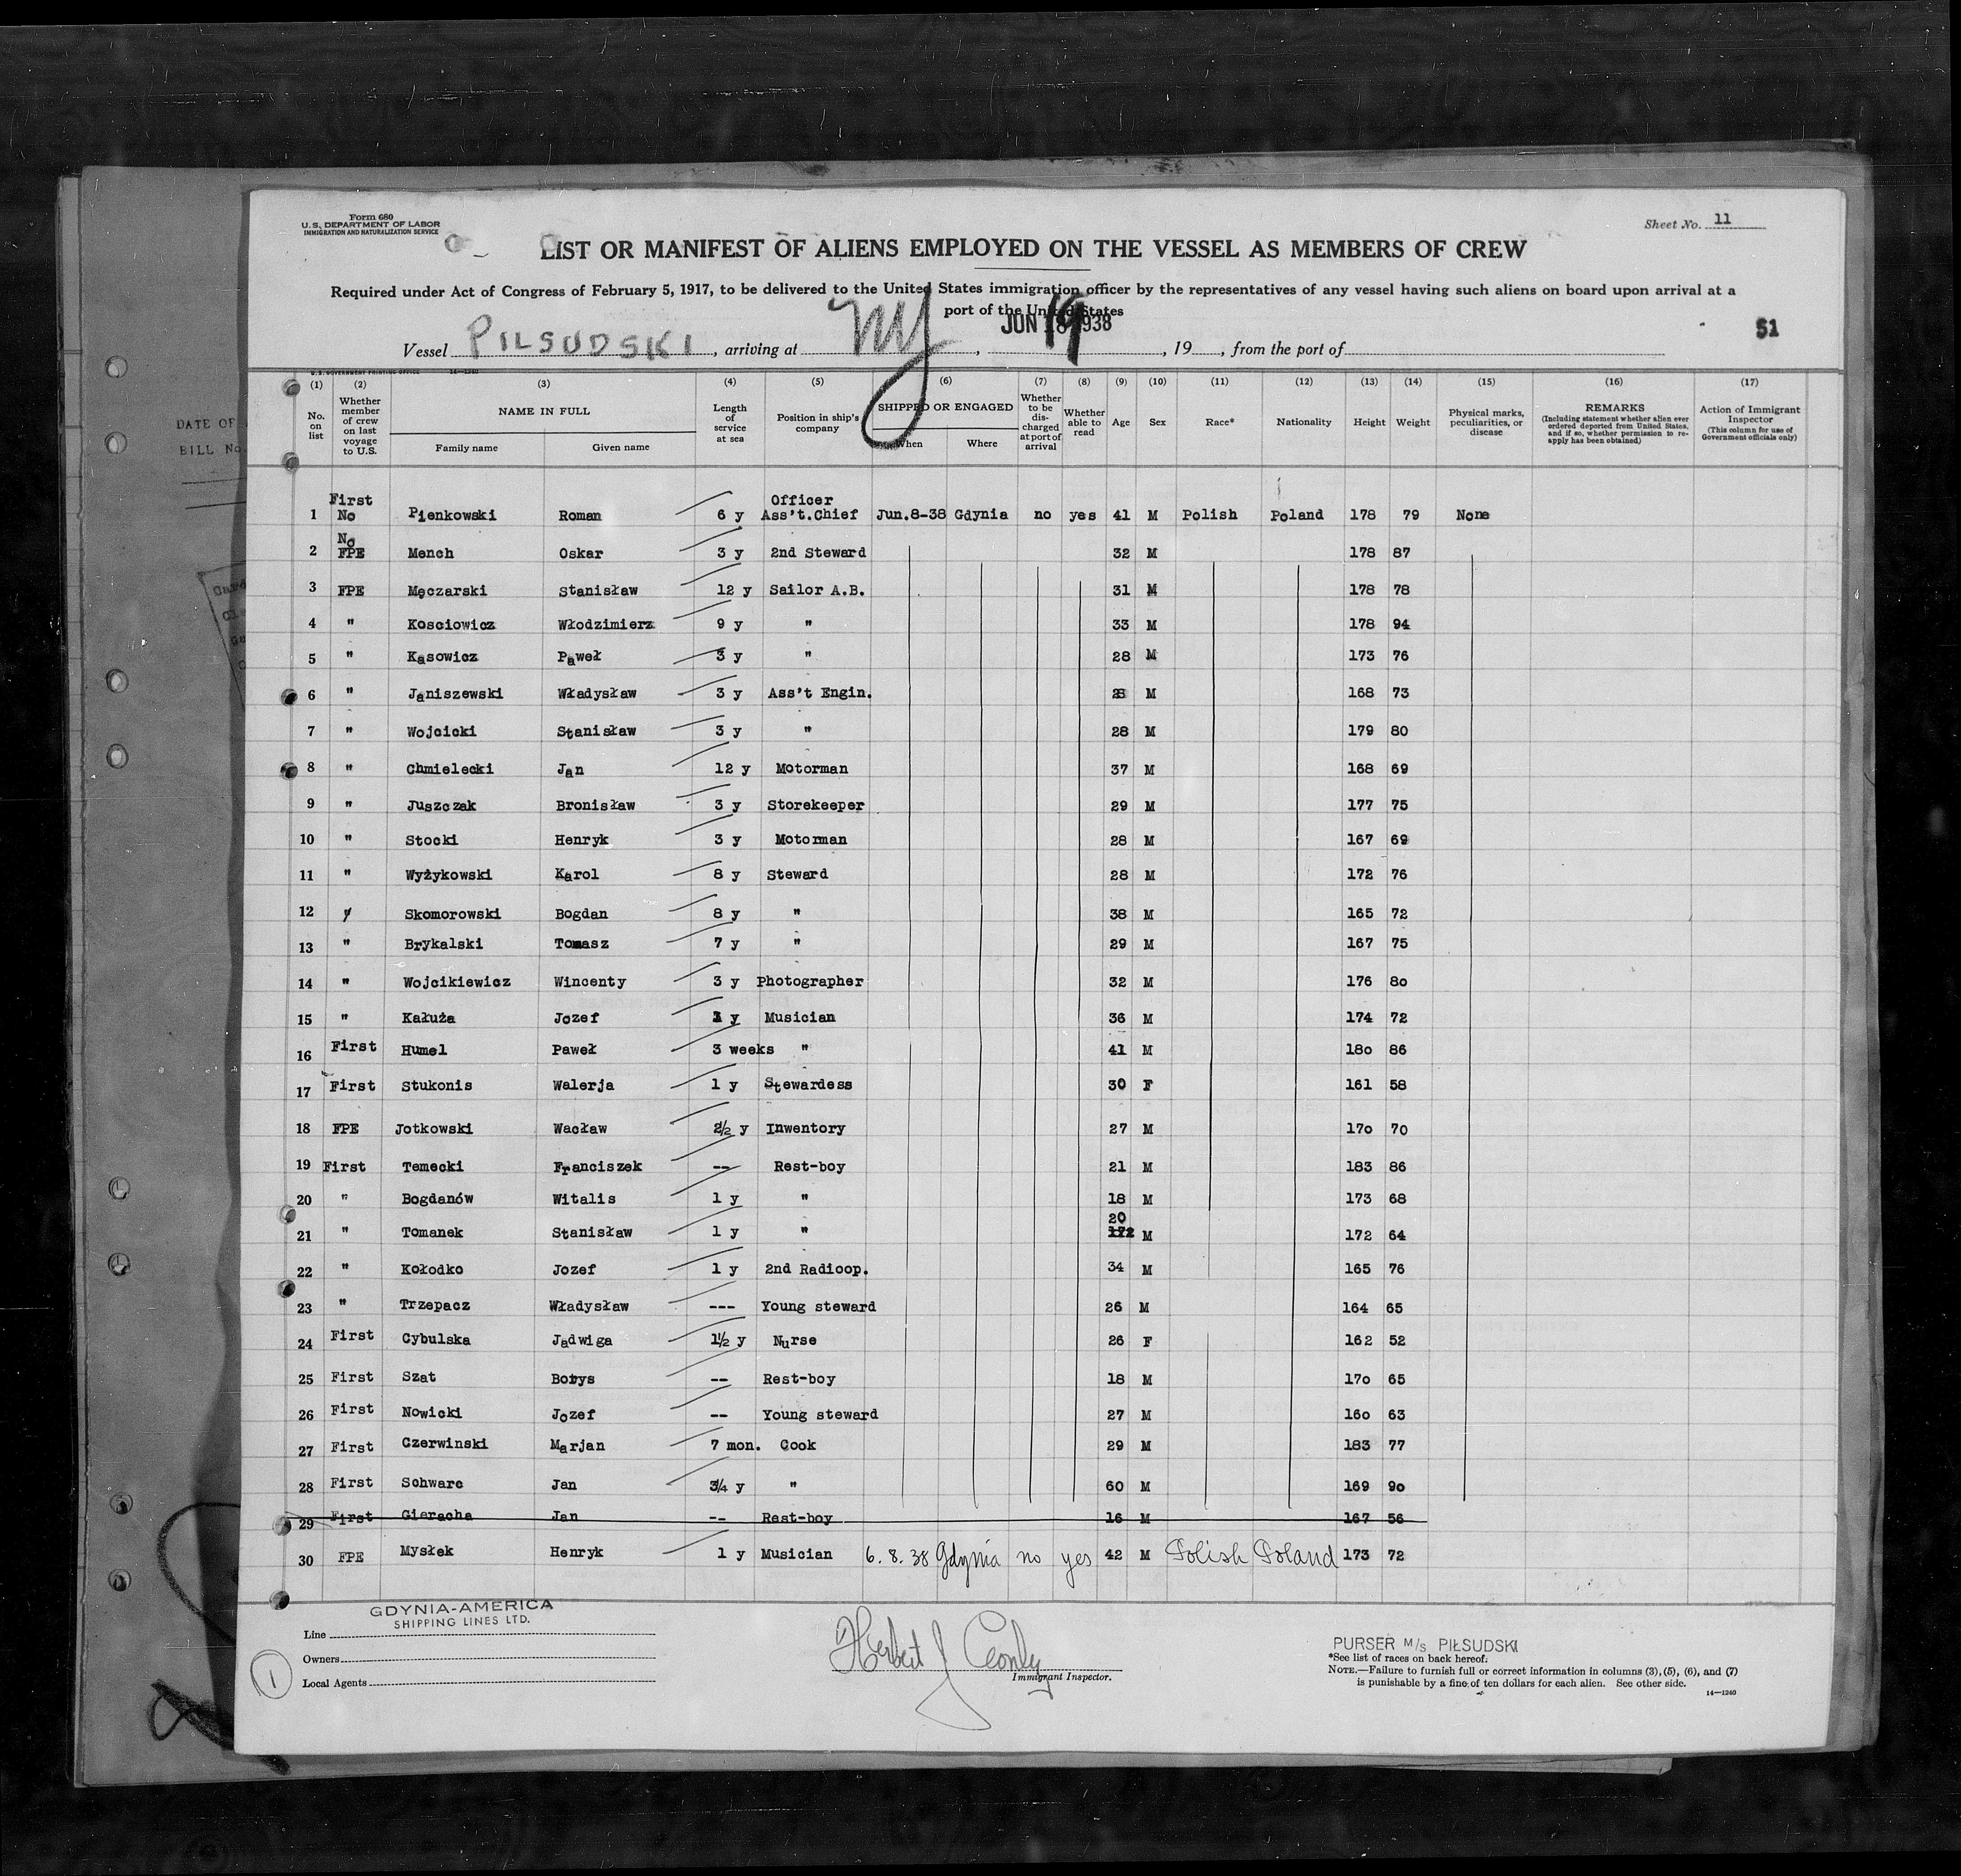 Form 680
U.S. DEPARTMENT OF LABOR
IMMIGRATION AND NATURALIZATION SERVICE
Sheet No. 11
LIST OR MANIFEST OF ALIENS EMPLOYED ON THE VESSEL AS MEMBERS OF CREW
Required under Act of Congress of February 5, 1917, to be delivered to the United States immigration officer by the representatives of any vessel having such aliens on board upon arrival at a
port of the United States
Vessel PILSUDSKI, arriving at NY, JUN 19 1938, 19, from the port of
51
U.S. GOVERNMENT PRINTING OFFICE 14—1240
DATE OF
BILL No
(1) (2) (3) (4) (5) (6) (7) (8) (9) (10) (11) (12) (13) (14) (15) (16) (17)
No. on list
Whether member of crew on last voyage to U.S.
NAME IN FULL
Family name Given name
Length of service at sea
Position in ship's company
SHIPPED OR ENGAGED
When Where
Whether to be discharged at port of arrival
Whether able to read
Age Sex Race* Nationality Height Weight
Physical marks, peculiarities, or disease
REMARKS
(Including statement whether alien ever ordered deported from United States, and if so, whether permission to reapply has been obtained)
Action of Immigrant Inspector
(This column for use of Government officials only)
First Officer
1 No Pienkowski Roman 6 y Ass't.Chief Jun.8-38 Gdynia no yes 41 M Polish Poland 178 79 None
No
2 FPE Mench Oskar 3 y 2nd Steward 32 M 178 87
3 FPE Męczarski Stanisław 12 y Sailor A.B. 31 M 178 78
4 " Kosciowicz Włodzimierz 9 y " 33 M 178 94
5 " Kąsowicz Paweł 3 y " 28 M 173 76
6 " Janiszewski Władysław 3 y Ass't Engin. 28 M 168 73
7 " Wojcicki Stanisław 3 y " 28 M 179 80
8 " Chmielecki Jan 12 y Motorman 37 M 168 69
9 " Juszczak Bronisław 3 y Storekeeper 29 M 177 75
10 " Stocki Henryk 3 y Motorman 28 M 167 69
11 " Wyżykowski Karol 8 y Steward 28 M 172 76
12 " Skomorowski Bogdan 8 y " 38 M 165 72
13 " Brykalski Tomasz 7 y " 29 M 167 75
14 " Wojcikiewicz Wincenty 3 y Photographer 32 M 176 80
15 " Kałuża Jozef y Musician 36 M 174 72
16 First Humel Paweł 3 weeks " 41 M 180 86
17 First Stukonis Walerja 1 y Stewardess 30 F 161 58
18 FPE Jotkowski Wacław 2½ y Inwentory 27 M 170 70
19 First Temecki Franciszek -- Rest-boy 21 M 183 86
20 " Bogdanów Witalis 1 y " 18 M 173 68
20
21 " Tomanek Stanisław 1 y " 172 M 172 64
22 " Kołodko Jozef 1 y 2nd Radioop. 34 M 165 76
23 " Trzepacz Władysław --- Young steward 26 M 164 65
24 First Cybulska Jadwiga 1½ y Nurse 26 F 162 52
25 First Szat Borys -- Rest-boy 18 M 170 65
26 First Nowicki Jozef -- Young steward 27 M 160 63
27 First Czerwinski Marjan 7 mon. Cook 29 M 183 77
28 First Schwarc Jan ¾ y " 60 M 169 90
29 First Gieracha Jan -- Rest-boy 16 M 167 56
30 FPE Mysłek Henryk 1 y Musician 6. 8. 38 Gdynia no yes 42 M Polish Poland 173 72
GDYNIA-AMERICA
SHIPPING LINES LTD.
Line
Owners
Local Agents
1
Herbert J
Immigrant Inspector.
PURSER M/s PIŁSUDSKI
*See list of races on back hereof.
NOTE.—Failure to furnish full or correct information in columns (3), (5), (6), and (7)
is punishable by a fine of ten dollars for each alien. See other side.
14—1240